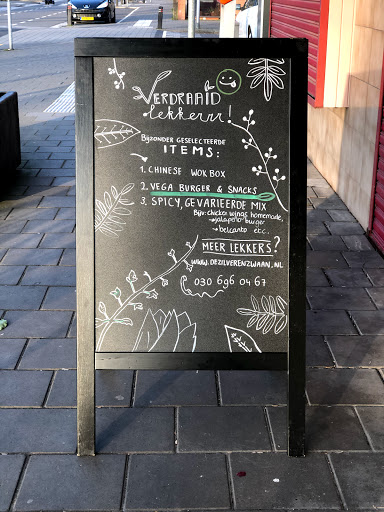 VERDRAAID
lekkerrr!
BIJZONDER GESELECTEERDE
ITEMS:
1. CHINESE WOK BOX
2. VEGA BURGER & SNACKS
3. SPICY, GEVARIEERDE MIX
Bijv: chicken wings homemade,
→ jalapeño-burger
→ belcanto etc.
MEER LEKKERS?
WWW.DEZILVERENZWAAN.NL
030 696 04 67